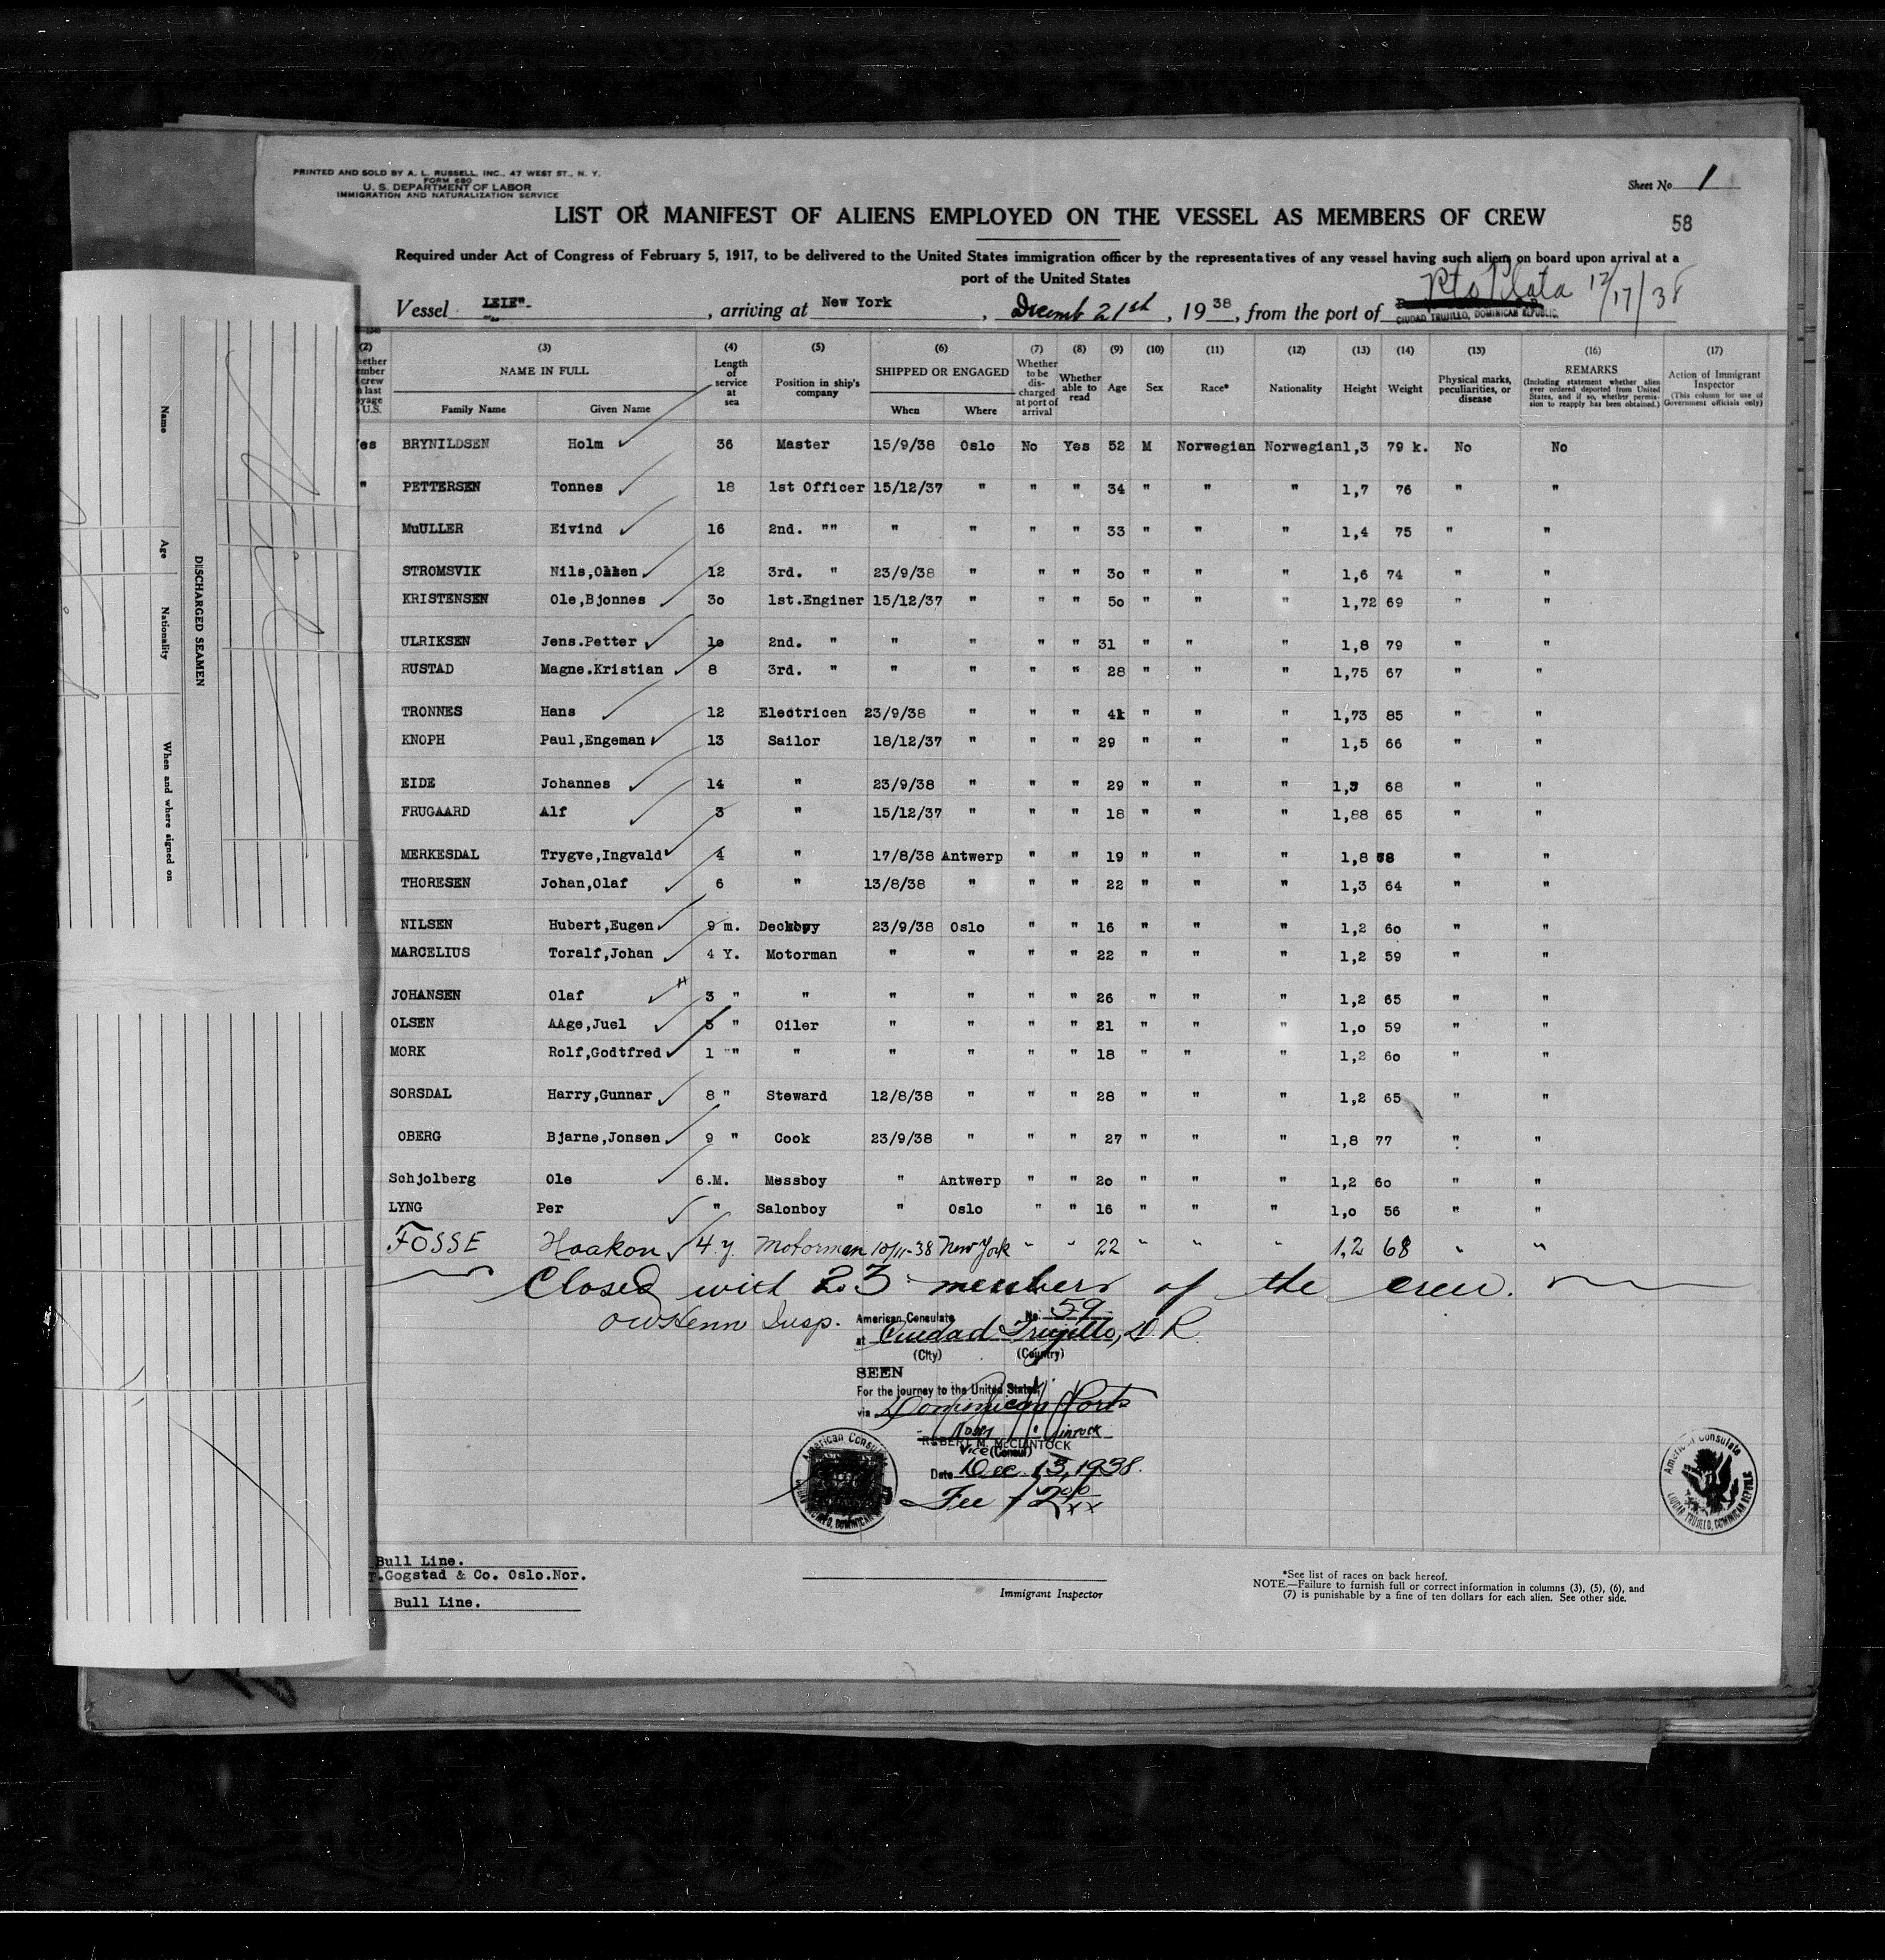 PRINTED AND SOLD BY A. L. RUSSELL, INC., 47 WEST ST., N. Y.
FORM 680
U. S. DEPARTMENT OF LABOR
IMMIGRATION AND NATURALIZATION SERVICE
Sheet No. 1
LIST OR MANIFEST OF ALIENS EMPLOYED ON THE VESSEL AS MEMBERS OF CREW
58
Required under Act of Congress of February 5, 1917, to be delivered to the United States immigration officer by the representatives of any vessel having such aliens on board upon arrival at a
port of the United States
Pto Plata 12/17/38
Vessel LEIF", arriving at New York, Decemb 21st, 1938, from the port of
CIUDAD TRUJILLO, DOMINICAN REPUBLIC.
(2) (3) (4) (5) (6) (7) (8) (9) (10) (11) (12) (13) (14) (15) (16) (17)
NAME IN FULL Length of service at sea Position in ship's company SHIPPED OR ENGAGED Whether to be discharged at port of arrival Whether able to read Age Sex Race* Nationality Height Weight Physical marks, peculiarities, or disease REMARKS (Including statement whether alien ever ordered deported from United States, and if so, whether permission to reapply has been obtained.) Action of Immigrant Inspector (This column for use of Government officials only)
Family Name Given Name When Where
es BRYNILDSEN Holm 36 Master 15/9/38 Oslo No Yes 52 M Norwegian Norwegian 1,3 79 k. No No
" PETTERSEN Tonnes 18 1st Officer 15/12/37 " " " 34 " " " 1,7 76 " "
MuULLER Eivind 16 2nd. "" " " " " 33 " " " 1,4 75 " "
STROMSVIK Nils, 12 3rd. " 23/9/38 " " " 30 " " " 1,6 74 " "
KRISTENSEN Ole,Bjonnes 30 1st.Enginer 15/12/37 " " " 50 " " " 1,72 69 " "
ULRIKSEN Jens.Petter 10 2nd. " " " " " 31 " " " 1,8 79 " "
RUSTAD Magne.Kristian 8 3rd. " " " " " 28 " " " 1,75 67 " "
TRONNES Hans 12 Electricen 23/9/38 " " " 41 " " " 1,73 85 " "
KNOPH Paul,Engeman 13 Sailor 18/12/37 " " " 29 " " " 1,5 66 " "
EIDE Johannes 14 " 23/9/38 " " " 29 " " " 1,3 68 " "
FRUGAARD Alf 3 " 15/12/37 " " " 18 " " " 1,88 65 " "
MERKESDAL Trygve,Ingvald 4 " 17/8/38 Antwerp " " 19 " " " 1,8 " "
THORESEN Johan,Olaf 6 " 13/8/38 " " " 22 " " " 1,3 64 " "
NILSEN Hubert,Eugen 9 m. Deckboy 23/9/38 Oslo " " 16 " " " 1,2 60 " "
MARCELIUS Toralf,Johan 4 Y. Motorman " " " " 22 " " " 1,2 59 " "
JOHANSEN Olaf 3 " " " " " " 26 " " " 1,2 65 " "
OLSEN AAge,Juel 5 " Oiler " " " " 21 " " " 1,0 59 " "
MORK Rolf,Godtfred 1 " " " " " " 18 " " " 1,2 60 " "
SORSDAL Harry,Gunnar 8 " Steward 12/8/38 " " " 28 " " " 1,2 65 " "
OBERG Bjarne,Jonsen 9 " Cook 23/9/38 " " " 27 " " " 1,8 77 " "
Schjolberg Ole 6.M. Messboy " Antwerp " " 20 " " " 1,2 60 " "
LYNG Per " Salonboy " Oslo " " 16 " " " 1,0 56 " "
FOSSE Haakon 4.y. Motorman 10/11-38 New York " " 22 " " " 1,2 68 " "
Closed with 23 members of the crew.
Insp.
American Consulate No. 59
at Ciudad Trujillo, D.R.
(City) (Country)
SEEN
For the journey to the United States
via Dominican Ports
ROBERT M. McCLINTOCK
Vice (Consul)
Date Dec. 13, 1938.
Fee $2.00
American Consulate
CIUDAD TRUJILLO, DOMINICAN REPUBLIC
Bull Line.
.Gogstad & Co. Oslo.Nor.
Bull Line.
Immigrant Inspector
*See list of races on back hereof.
NOTE.—Failure to furnish full or correct information in columns (3), (5), (6), and
(7) is punishable by a fine of ten dollars for each alien. See other side.
DISCHARGED SEAMEN
Name Age Nationality When and where signed on